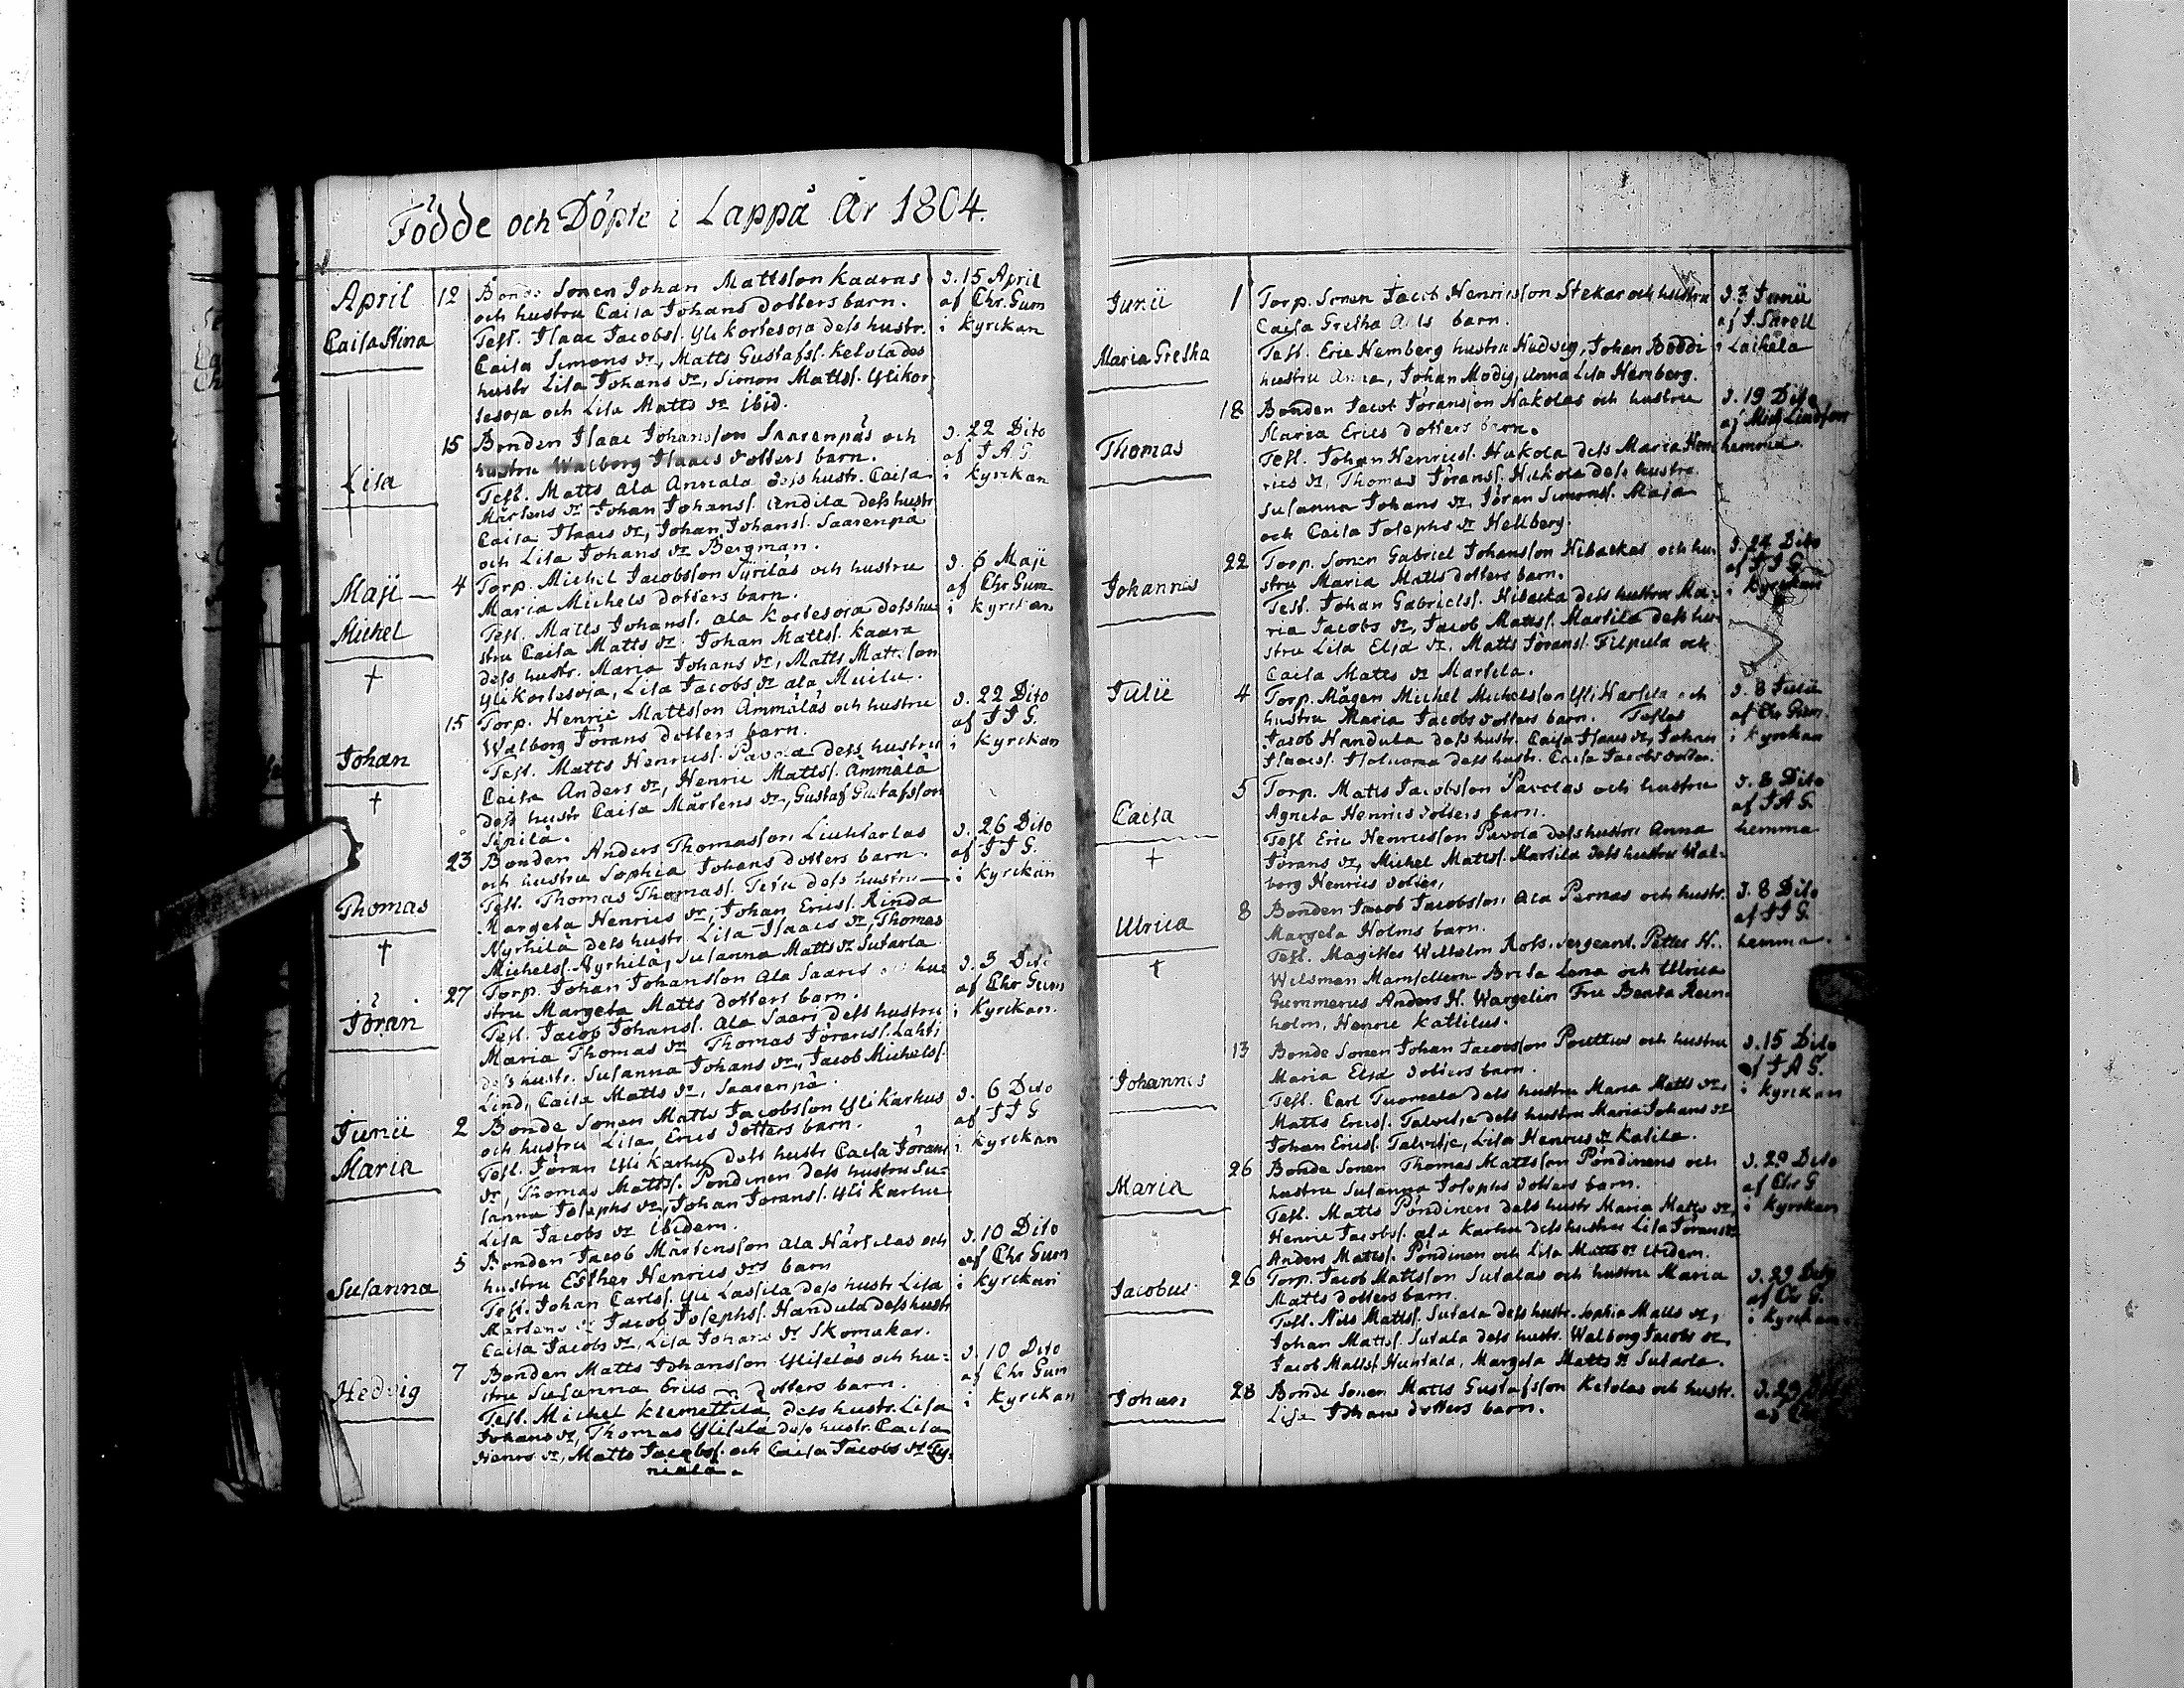 Födde och Döpte i Lappå År 1804.
April 12 Bonde Sonen Johan Mattsson Kaaras d. 15 April
och hustru Caisa Johans dotters barn. af Chr. Gum
Caisa Stina Test. Isaac Jacobs. Yli Kortesoja dess hustr. i Kyrckan
Caisa Simons dr, Matts Gustafs. Ketola des
hustr Lisa Johans dr, Simon Matts. Ylikor
tesoja och Lisa Matts dr ibid.
15 Bonden Isaac Johansson Saarenpäs och d. 22 Dito
hustru Walborg Isaacs dotters barn. af J A G
Lisa Test. Matts Ala Annala dess hustr. Caisa i Kyrckan
Mårtens dr Johan Johans. Andila dess hustr
Caisa Isaacs dr, Johan Johans. Saarenpä
och Lisa Johans dr Bergman.
Maji 4 Torp. Michel Jacobsson Syriläs och hustru d. 6 Maji
Maria Michels dotters barn. af Chr Gum
Michel Test. Matts Johans. Ala Kortesoja dess hu i Kyrckan
stru Caisa Matts dr. Johan Matts. Kaara
† dess hustr. Maria Johans dr, Matts Matt.son
Ylikortesoja, Lisa Jacobs dr ala Muilu.
15 Torp. Henric Mattsson Ämmäläs och hustru d. 22 Dito
Walborg Jörans dotters barn. af J J G.
Johan Test. Matts Henrics. Pavola dess hustru i Kyrckan
Caisa Anders dr, Henric Matts. Ämmälä
† dess hustr Caisa Mårtens dr, Gustaf Gustafsson
Sipilä.
23 Bonden Anders Thomasson Liuhtarlas d. 26 Dito
och hustru Sophia Johans dotters barn. af J J G.
Test. Thomas Thomas. dess hustru i Kyrckan
Thomas Margeta Henrics dr, Johan Erics. Rinda
Nyrhilä dess hustr. Lisa Isaacs dr, Thomas
† Michels. Nyrhilä, Susanna Matts dr Sutarla.
27 Torp. Johan Johansson Ala Saaris hu d. 3
stru Margeta Matts dotters barn. af Chr Gum
Jöran Test. Jacob Johans. Ala Saari dess hustru i Kyrckan.
Maria Thomas dr Thomas Jörans. Lahti
dess hustr. Susanna Johans dr, Jacob Michels.
Lind, Caisa Matts dr, Saarenpä.
Junii 2 Bonde Sonen Matts Jacobsson Yli Karhus d. 6 Dito
och hustru Lisa Erics dotters barn. af J J G
Maria Test. Jöran Yli Karhu dess hustr Caisa Jörans i Kyrckan
dr, Thomas Matts. Pöndinen dess hustru Su-
sanna Josephs dr, Johan Jörans. Yli Karhu
Lisa Jacobs dr ibidem.
5 Bonden Jacob Mårtensson Ala Härsilas och d. 10 Dito
hustru Esther Henrics drs barn af Chr Gum
Susanna Test. Johan Carls. Yli Lassila dess hustr Lisa i Kyrckan
Mårtens dr Jacob Josephs. Handula dess hustr
Caisa Jacobs dr, Lisa Johans dr Skomakar.
7 Bonden Matts Johansson Yliseläs och hu- d. 10 Dito
stru Susanna Erics dotters barn. af Chr Gum
Hedvig Test. Michel Klemettila dess hustr. Lisa i Kyrckan
Johans dr, Thomas Ylisela dess hustr. Caisa
Henrs dr, Matts Jacobs. och Caisa Jacobs dr Ty-
niala.
Junii 1 Torp. Sonen Jacob Henricsson Stekar och hustru d. 3 Junii
Caisa Gretha barn. af J. Sarell
Maria Gretha Test. Eric Hemberg hustru Hedvig, Johan Böddi i Laihela
hustru Anna, Johan Modig, Anna Lisa Hemberg.
18 Bonden Jacob Jöransson Hakolas och hustru d. 19 Dito
Maria Erics dotters barn. af Mich Lindfors
Thomas Test. Johan Henrics. Hakola dess Maria Hen hemma.
rics dr, Thomas Jörans. Hakola dess hustru
Susanna Johans dr, Jöran Simons. Maja
och Caisa Josephs dr Hellberg.
22 Torp. Sonen Gabriel Johansson Hibackas och hu- d. 24 Dito
stru Maria Matts dotters barn. af J J G
Johannes Test. Johan Gabriels. Hibacka dess hustru Ma- i Kyrckan
ria Jacobs dr, Jacob Matts. Martila dess hu-
stru Lisa Elsa dr. Matts Jörans. Filpula och
Caisa Matts dr Martela.
Julii 4 Torp. Mågen Michel Michelsson Yli Harsila och d. 8 Julii
hustru Maria Jacobs dotters barn. Testes af Chr Gum.
Jacob Handula dess hustr. Caisa Isaacs dr, Johan i Kyrckan
Isaacs. Isoluoma dess hustr. Caisa Jacobs dotter.
5 Torp. Matts Jacobsson Pavolas och hustru d. 8 Dito
Caisa Agneta Henrics dotters barn. af J A G.
Test Eric Henricsson Pavola dess hustru Anna hemma
† Jörans dr, Michel Matts. Martila dess hustru Wal-
borg Henrics dotter,
8 Bonden Jacob Jacobsson Ala Pernas och hustr. d. 8 Dito
Ulrica Margeta Holms barn. af J J G.
Test. Wilhelm Ross. Sergeant. Petter H. hemma.
† Wilsman Mamsellerne Brita Lena och Ulrica
Gummerus Anders H. Wargelin Fru Beata Rein-
holm, Henric Kattilus.
13 Bonde Sonen Johan Jacobsson Pouttus och hustru d. 15 Dito
Maria Elsa dotters barn. af J A G.
Johannes Test. Carl Tuomala dess hustru Maria Matts dr, i Kyrckan
Matts Erics. Talvitje dess hustru Maria Johans dr
Johan Erics. Talvitje, Lisa Henrics dr Katila.
26 Bonde Sonen Thomas Mattsson Pöndinens och d. 29 Dito
Maria hustru Susanna Josephs dotters barn. af Chr G
Test. Matts Pöndinen dess hustr Maria Matts dr, i Kyrckan
Henric Jacobs. ala Karhu dess hustru Lisa Jörans dr
Anders Matts. Pöndinen och Lisa Matts dr ibidem.
26 Torp. Jacob Mattsson Sutalas och hustru Maria d. 29 Dito
Jacobus Matts dotters barn. af Chr G.
Test. Nils Matts. Sutala dess hustr. Sophia Matts dr, i Kyrckan
Johan Matts. Sutala dess hustr. Walborg Jacobs dr
Jacob Matts. Huntala, Margeta Matts dr Sutarla.
Johan 28 Bonde Sonen Matts Gustafsson Ketolas och hustr. d. 29
Lisa Johans dotters barn.